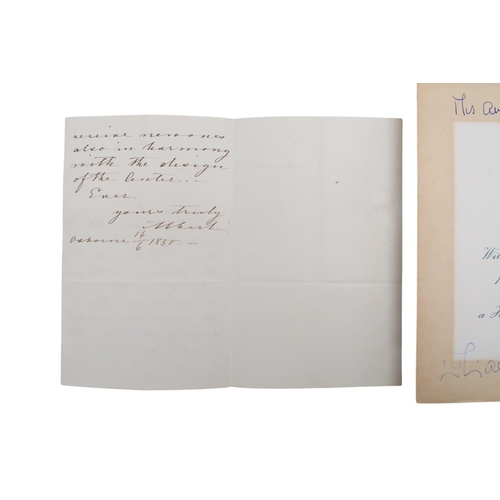 receive new ones
also in harmony
with the design
of the Center...
Ever
yours truly
Albert
Osborne 16/6 1850 —
Mrs
a